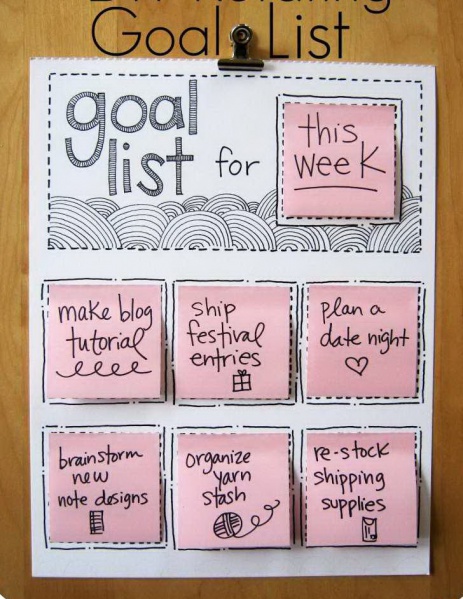 Goal List
goal
list for
this
week
make blog
tutorial
ship
festival
entries
plan a
date night
brainstorm
new
note designs
organize
yarn
stash
re-stock
shipping
supplies